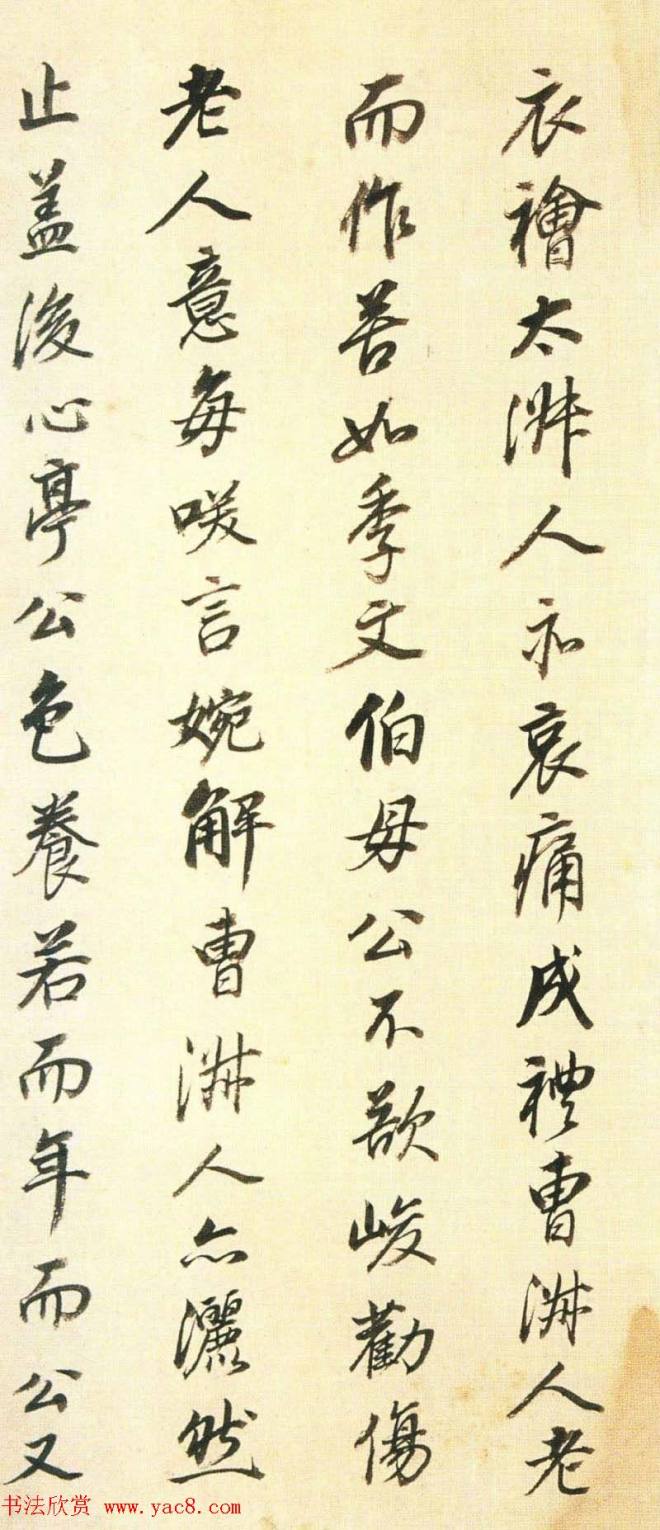 衣襘太淋人亦哀痛成禮曹淋人老
而作苦如季文伯母公不欲峻勸傷
老人意每咲言婉解曹淋人亦灑然
止盖浚心亭公色養若而年而公又
书法欣赏 www.yac8.com